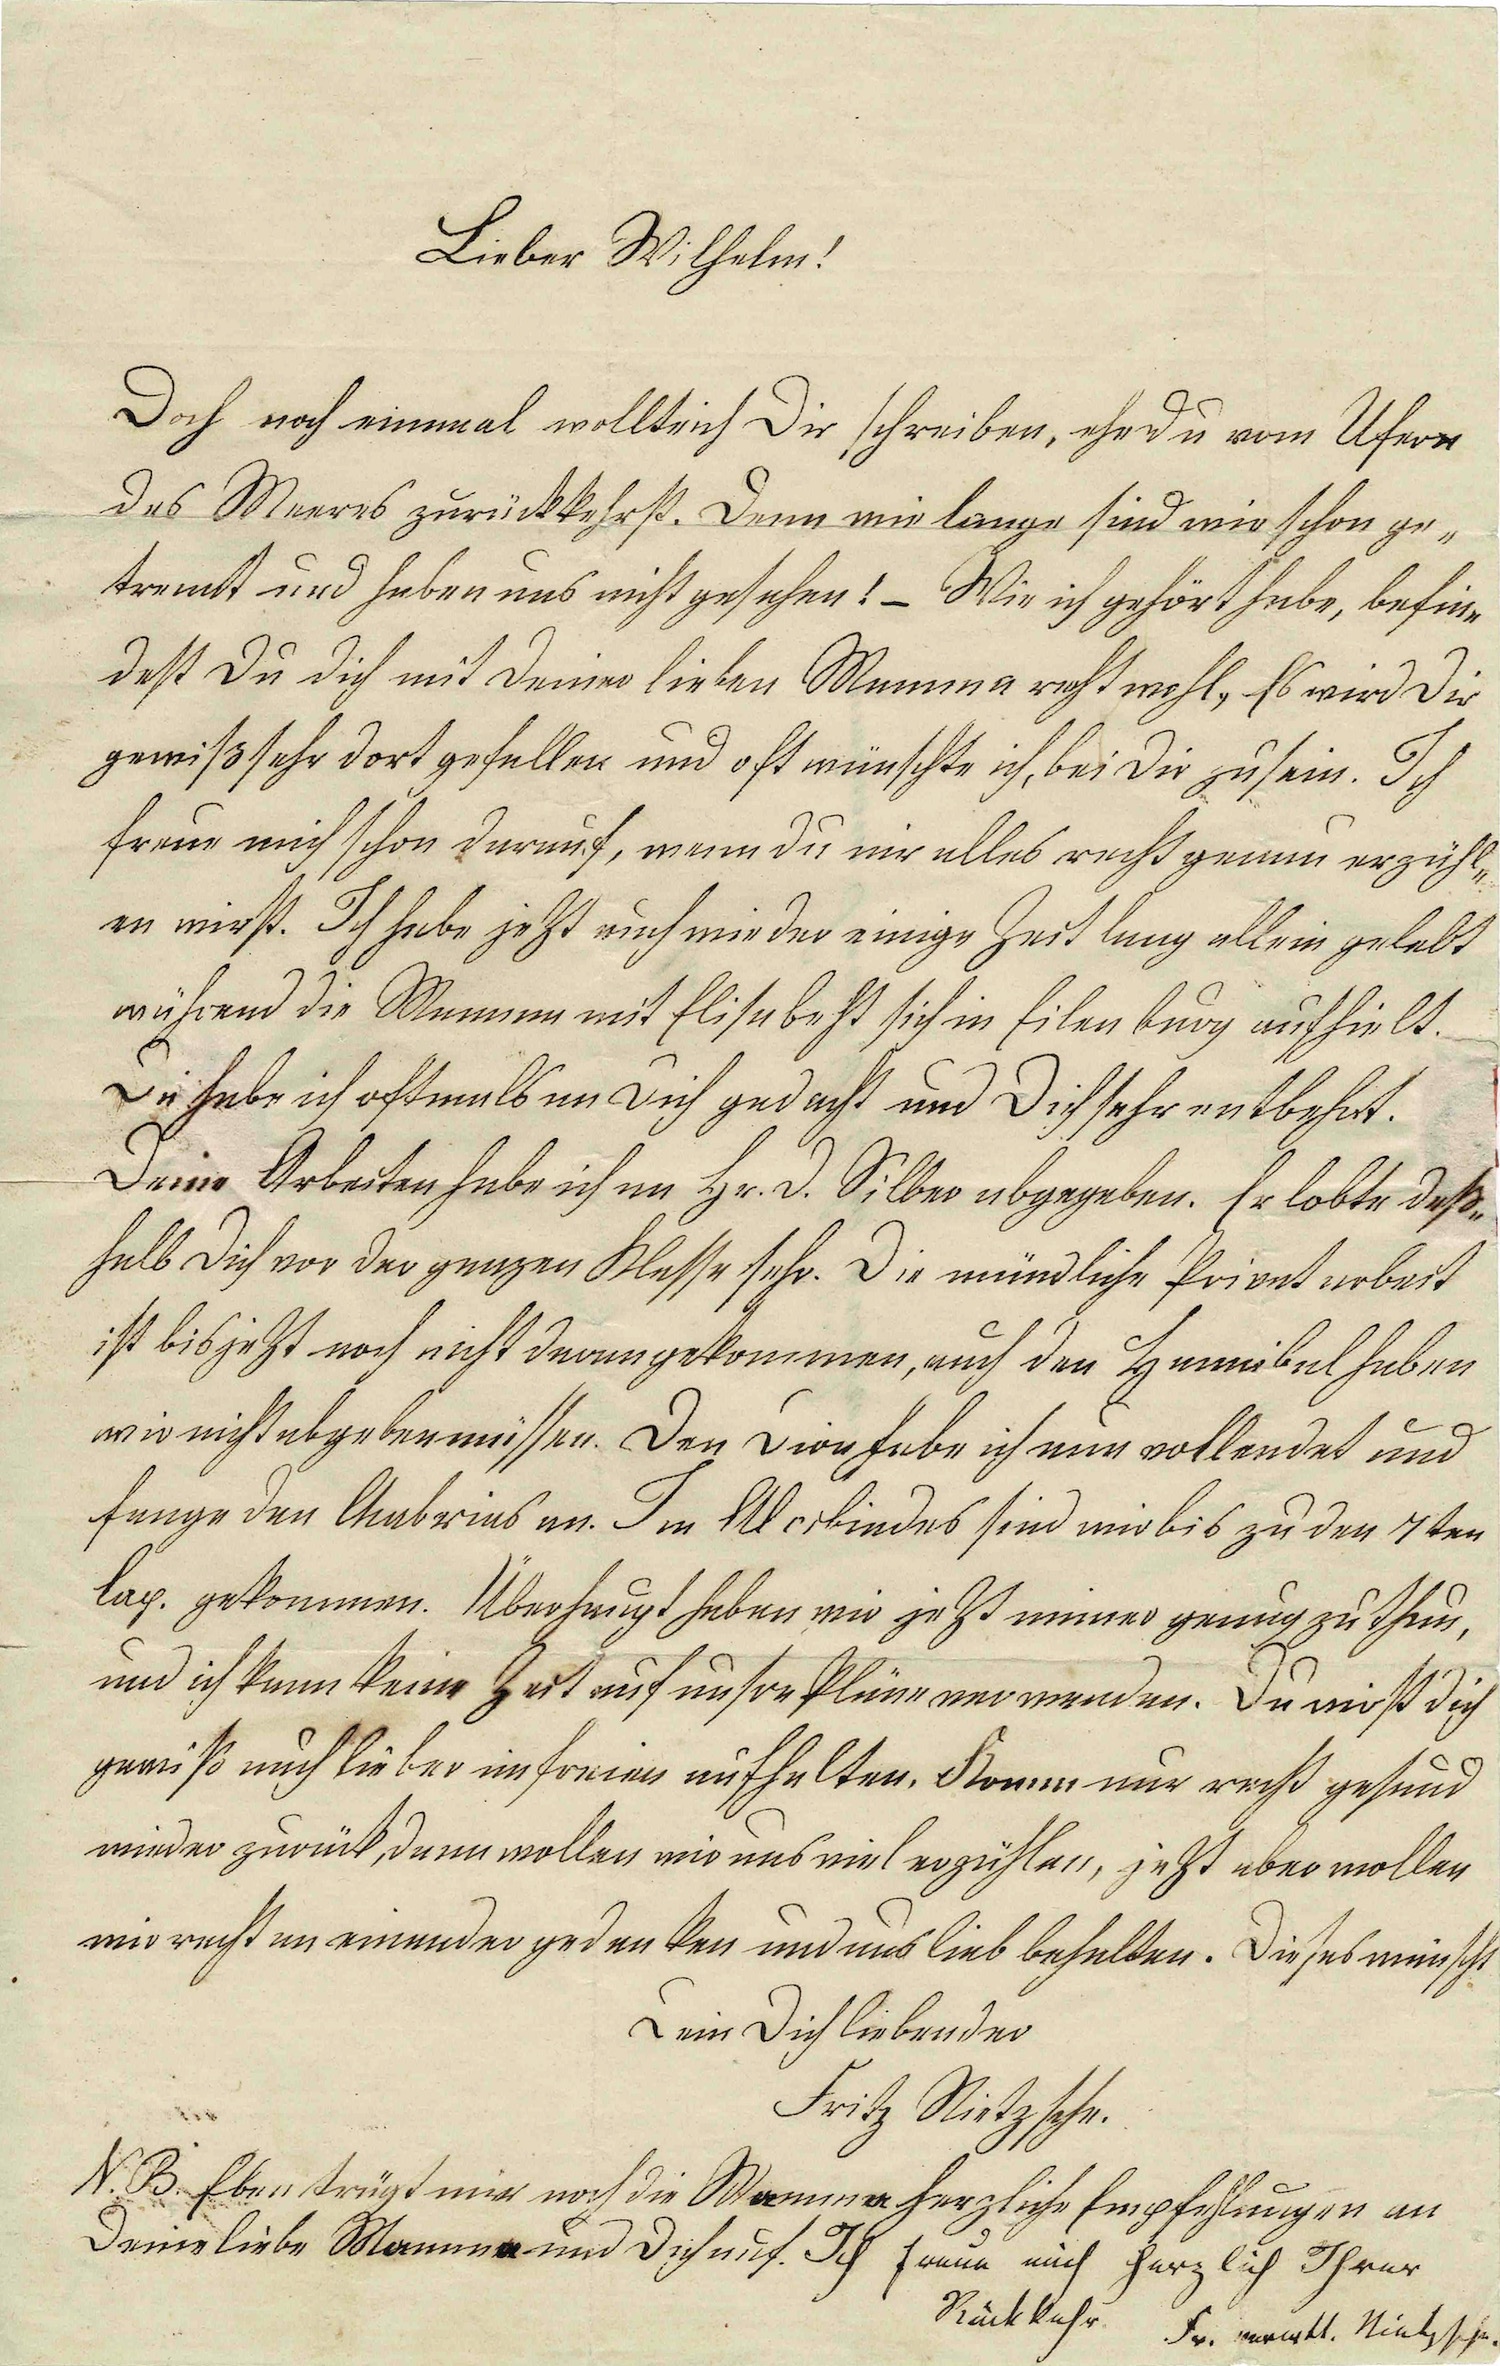 Lieber Wilhelm!
Doch noch einmal wollte ich Dir schreiben, ehe Du vom Ufern
des Meeres zurückkehrst. Denn wie lange sind wir schon ge-
trennt und haben uns nicht gesehen! – Wie ich gehört habe, befin-
dest Du dich mit Deiner lieben Mamma recht wohl, Es wird Dir
gewiß sehr dort gefallen und oft wünschte ich, bei Dir zu sein. Ich
freue mich schon darauf, wenn du mir alles recht genau erzähl-
en wirst. Ich habe jetzt auch wieder einige Zeit lang allein gelebt
während die Mamma mit Elisabeht sich in Eilenburg aufhielt.
Da habe ich oftmals an Dich gedacht und Dich sehr entbehrt.
Deine Arbeiten habe ich an Hr. D. Silber abgegeben. Er lobte deß-
halb Dich vor der ganzen Klasse sehr. Die mündliche Privatarbeit
ist bis jetzt noch nicht daran gekommen, auch den Hannibal haben
wir nicht abgeben müssen. Den Dion habe ich nun vollendet und
fange den Chabrias an. Im Alcibiades sind wir bis zu den 7ten
Cap. gekommen. Überhaupt haben wir jetzt immer genug zu thun,
und ich kann keine Zeit auf unsre Pläne verwenden. Du wirst dich
gewiß auch lieber im freien aufhalten. Komm nur recht gesund
wieder zurück, dann wollen wir uns viel erzählen, jetzt aber wollen
wir recht an einander gedenken und uns lieb behalten. Dieses wünscht
Dein Dich liebender
Fritz Nietzsche.
N. B. Eben trägt mir noch die Mamma herzliche Empfehlungen an
Deine liebe Mamma und Dich auf. Ich freue mich herzlich Ihrer
Rückkehr. Fr. verwitt. Nietzsche.